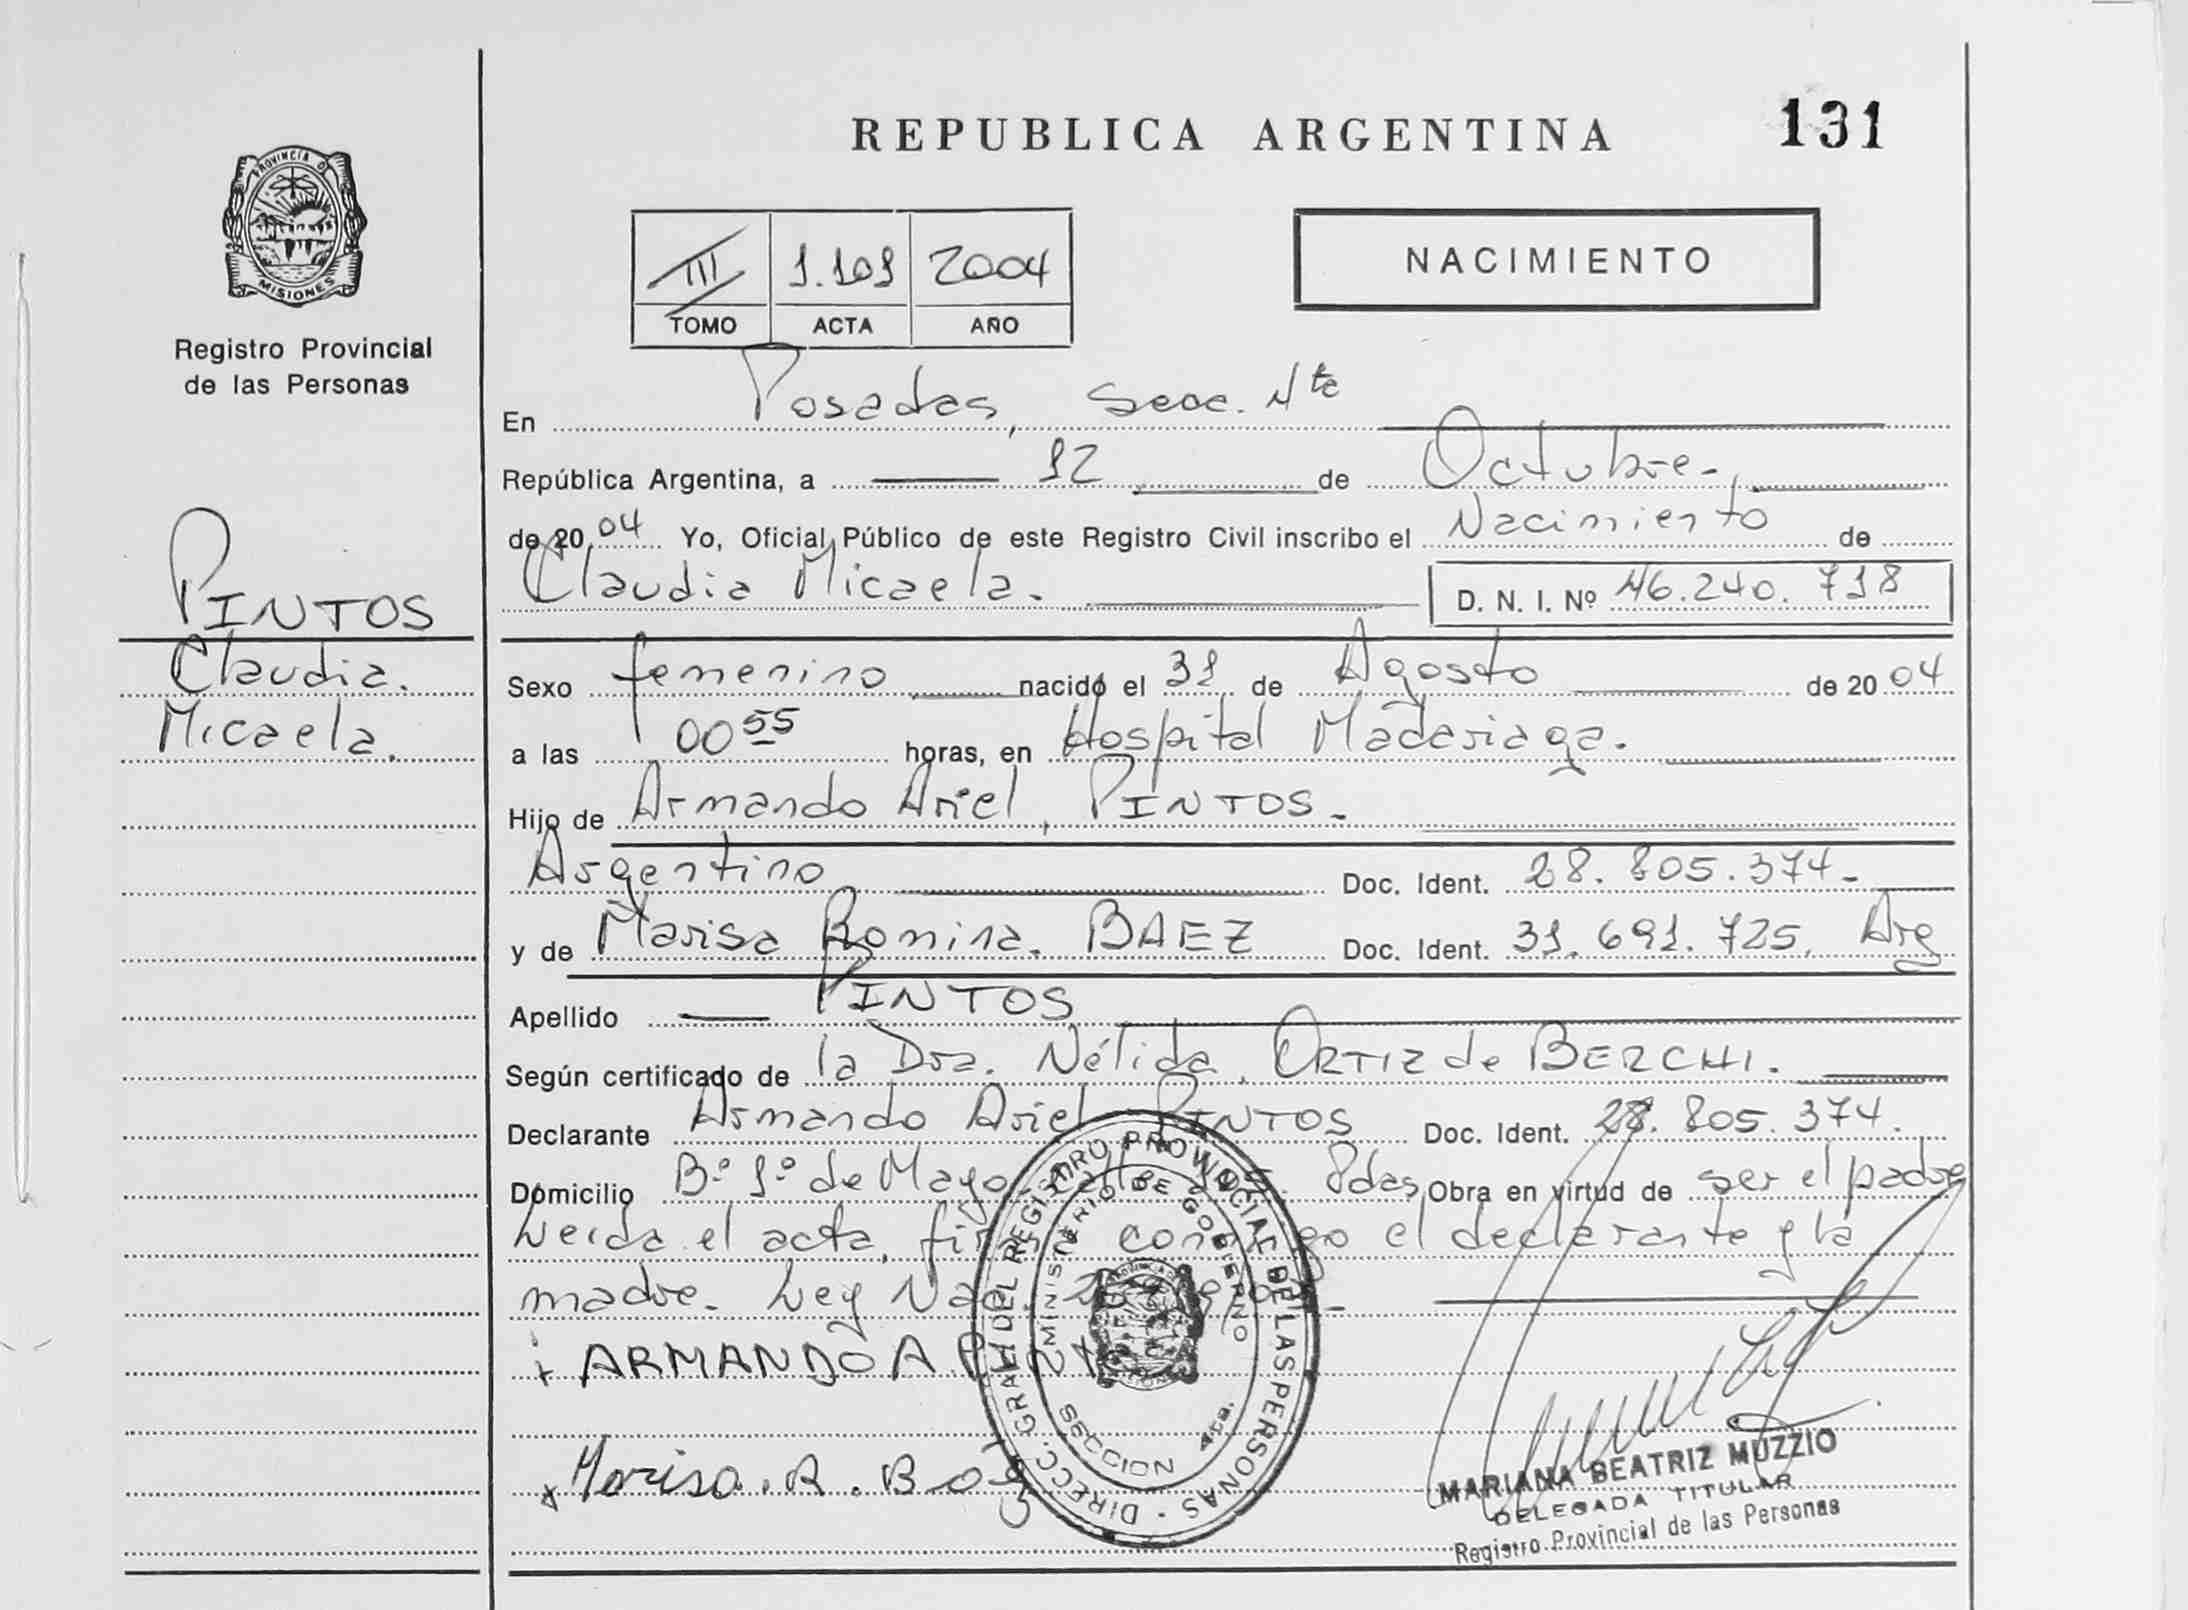 REPUBLICA ARGENTINA
131
PROVINCIA DE
MISIONES
Registro Provincial
de las Personas
III 1.101 2004
TOMO ACTA AÑO
NACIMIENTO
En Posadas, Secc. 4ta
República Argentina, a 12 de Octubre.
de 2004 Yo, Oficial Público de este Registro Civil inscribo el Nacimiento de
Claudia Micaela. D. N. I. Nº 46.240.718
PINTOS
Claudia.
Micaela.
Sexo femenino nacido el 31 de Agosto de 2004
a las 00 55 horas, en Hospital Madariaga.
Hijo de Armando Ariel, PINTOS.
Argentino Doc. Ident. 28.805.374.
y de Marisa Romina. BAEZ Doc. Ident. 31.691.725. Arg
Apellido PINTOS
Según certificado de la Dra. Nélida, ORTIZ de BERCHI.
Declarante Armando Ariel PINTOS Doc. Ident. 28.805.374.
Domicilio Bº 1º de Mayo Pdas, Obra en virtud de ser el padre
Leida el acta, conmigo el declarante y la
madre. Ley Nac.
ARMANDO A
Marisa. R. Baez
DIRECC. GRAL. DEL REGISTRO PROVINCIAL DE LAS PERSONAS
MINISTERIO DE GOBIERNO
SECCION 4ta.
MARIANA BEATRIZ MUZZIO
DELEGADA TITULAR
Registro Provincial de las Personas